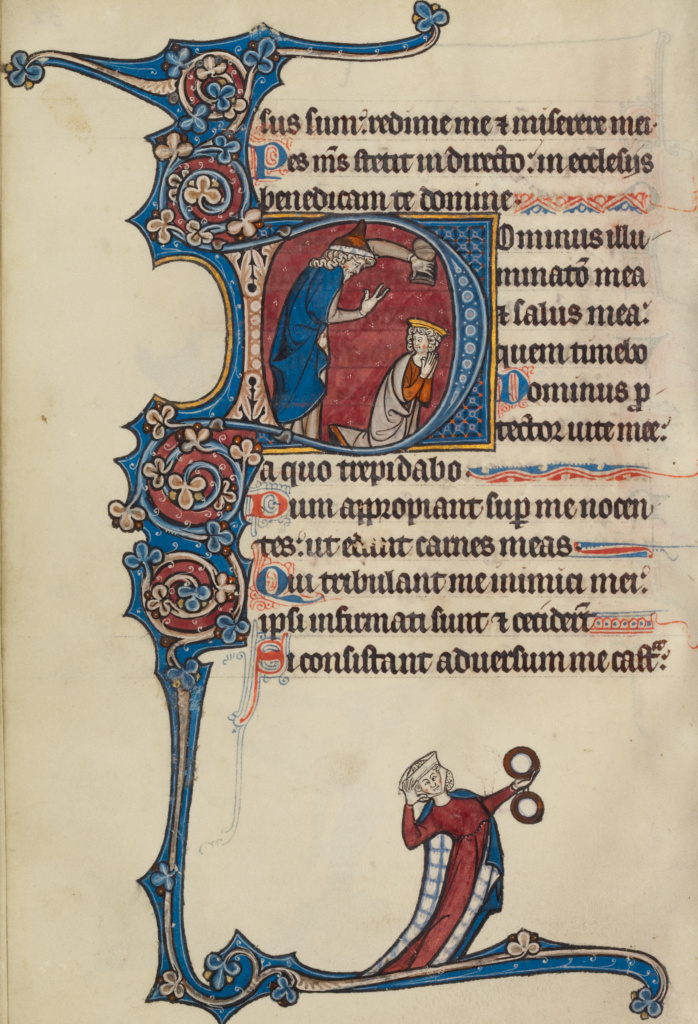 sus sum: redime me ⁊ miserere mei.
Pes m̅s stetit in directo: in ecclesijs
benedicam te domine.
Dominus illu
minatō mea
⁊ salus mea:
quem timebo
Dominus ꝓ
tector uite mee:
a quo trepidabo.
Dum appropiant sup̱ me nocen
tes: ut edant carnes meas.
Qui tribulant me inimici mei:
ipsi infirmati sunt ⁊ cecider̅t
Si consistant aduersum me castᵃ: